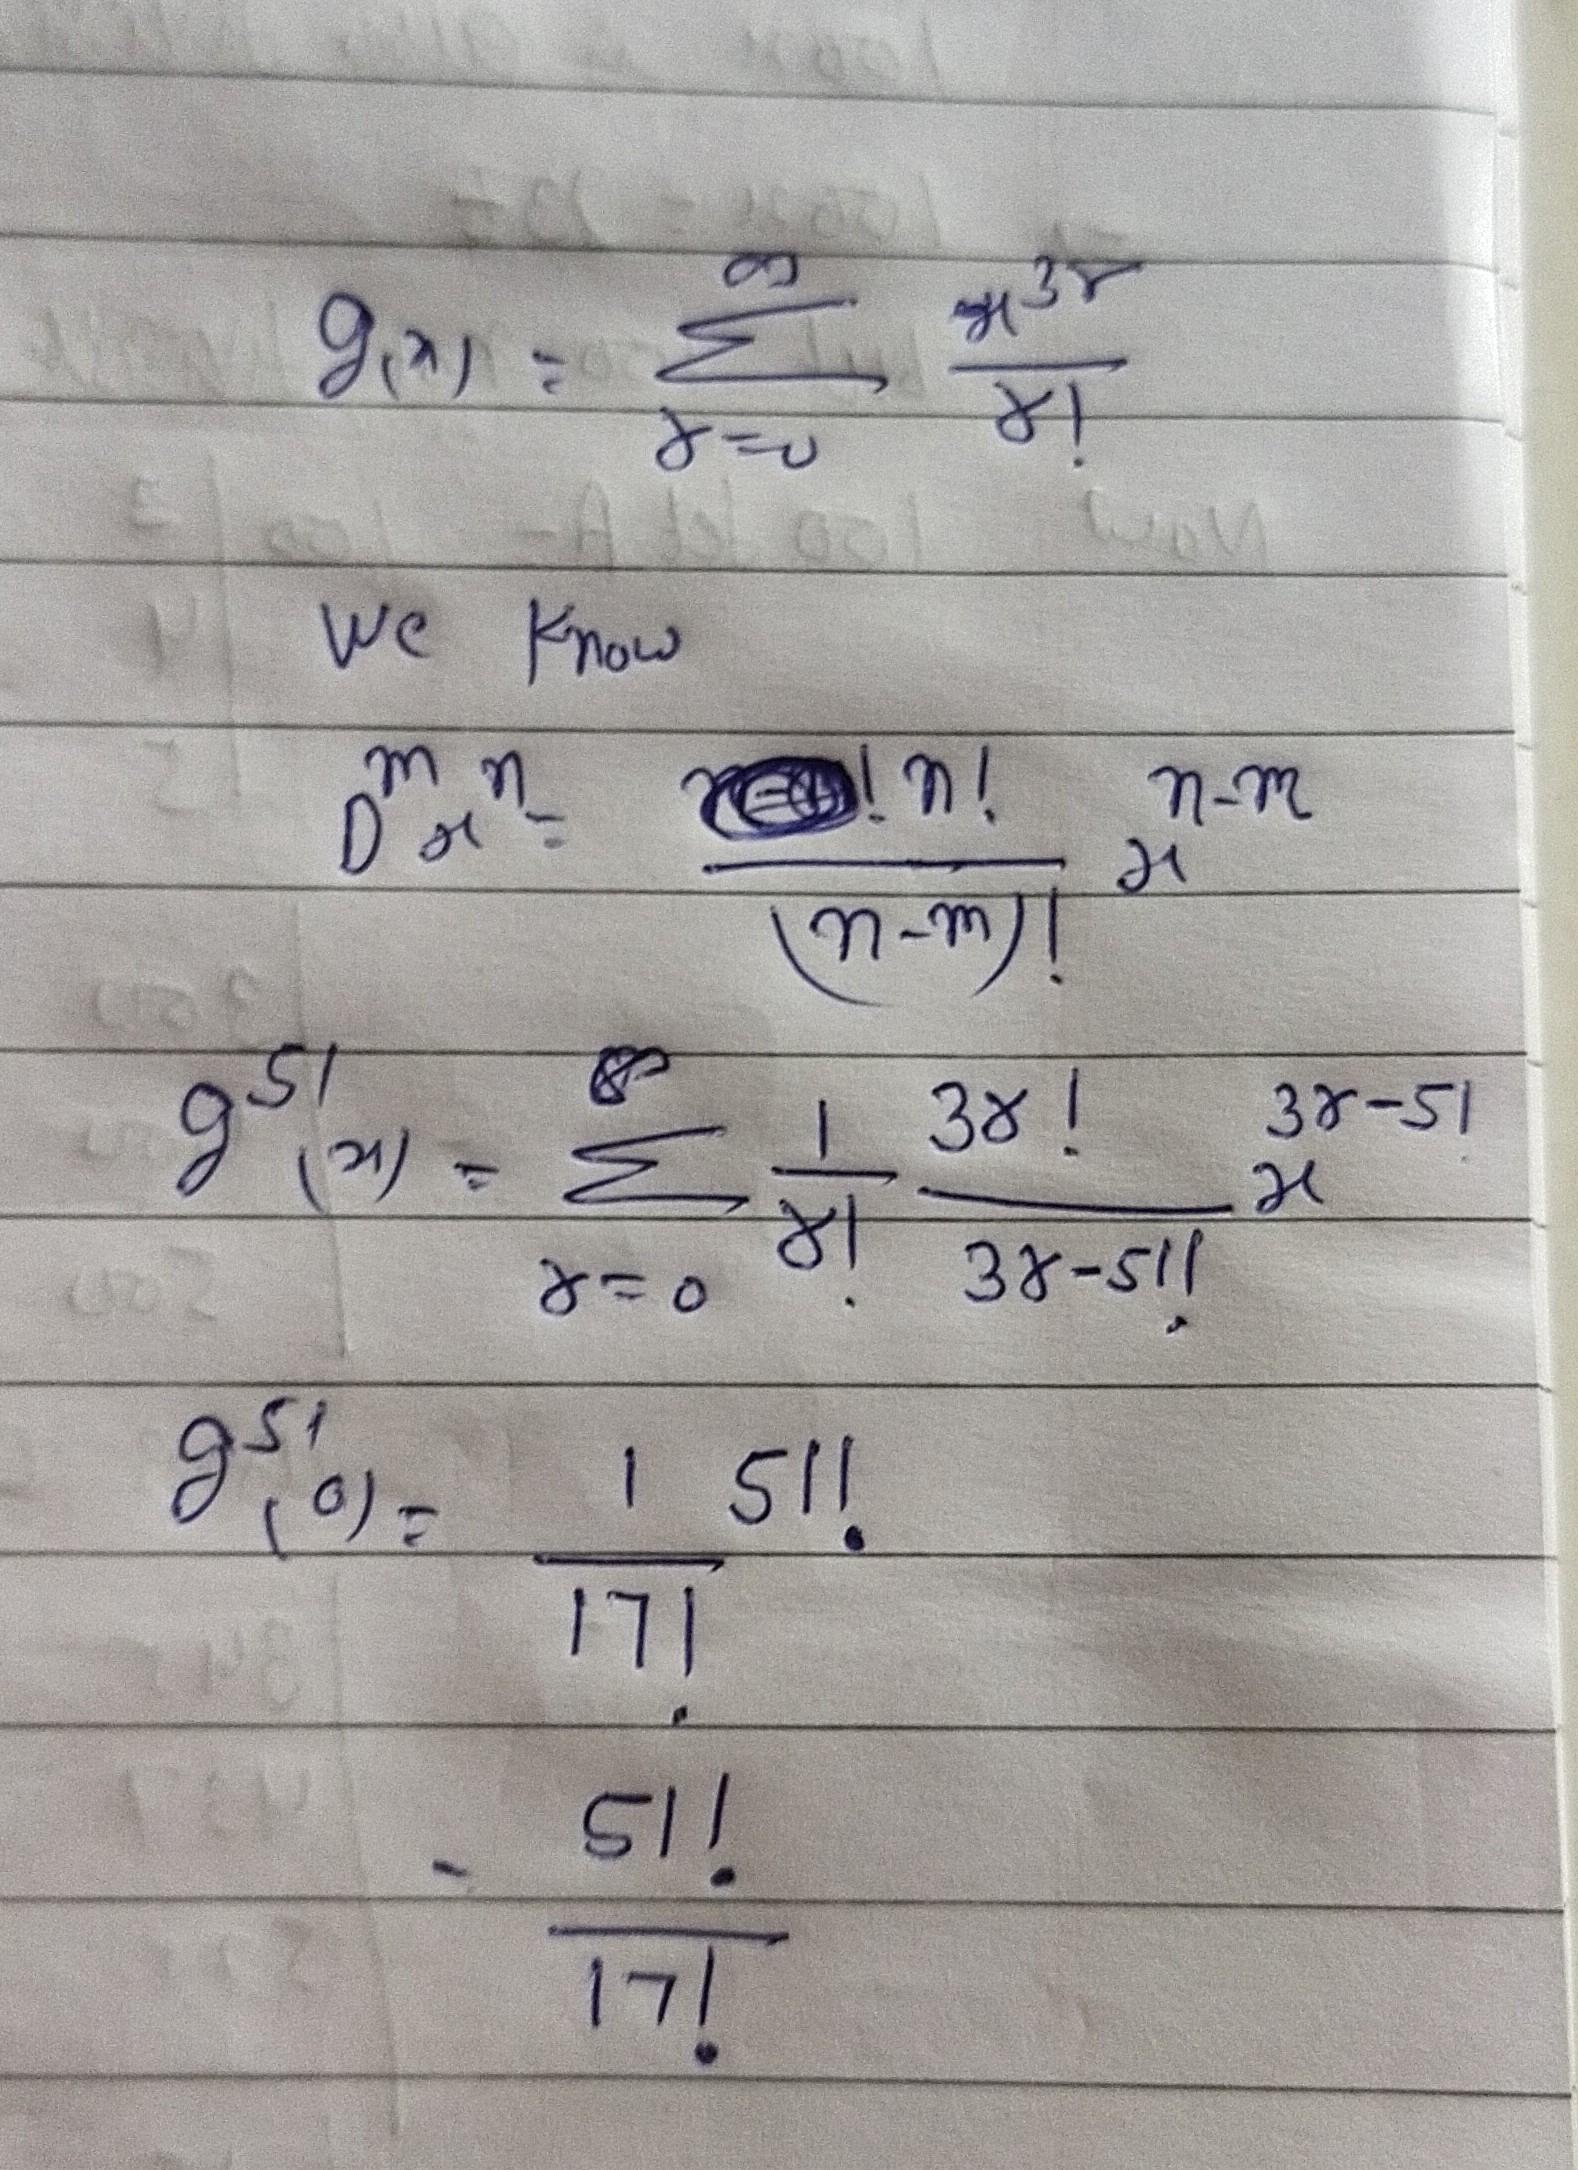 g(x) = ∑_{r=0}^{∞} x^{3r}/r!
We Know
D^m x^n = n!/(n-m)! x^{n-m}
g^{51}(x) = ∑_{r=0}^{∞} 1/r! 3r!/3r-51! x^{3r-51}
g^{51}(0) = 1/17! 51!
- 51!/17!